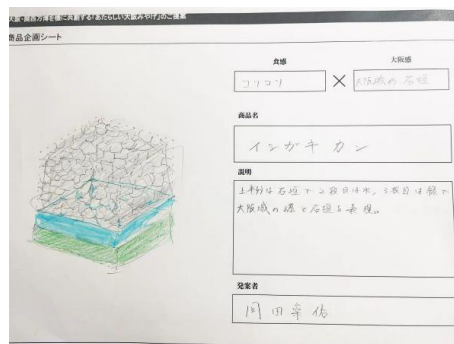 商品企画シート
食感
大阪感
コリコリ
×
大阪城の石垣
商品名
イシガキカン
説明
上半分は石垣で2段目は水、3段目は緑で
大阪城の緑と石垣を表現。
発案者